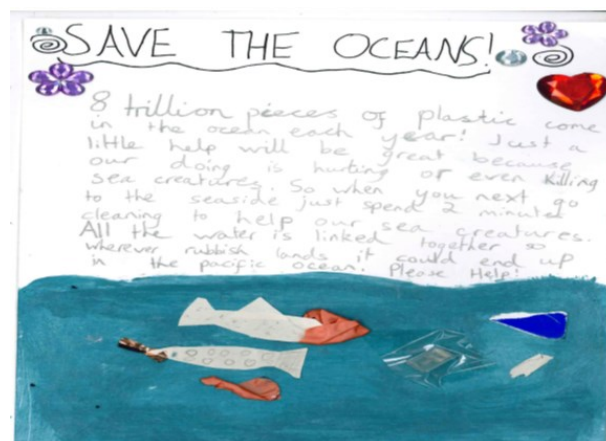 SAVE THE OCEANS!
8 trillion pieces of plastic come
in the ocean each year! Just a
little help will be great because
our doing is hurting or even killing
sea creatures. So when you next go
to the seaside just spend 2 minutes
cleaning to help our sea creatures.
All the water is linked together so
wherever rubbish lands it could end up
in the pacific ocean. Please Help!